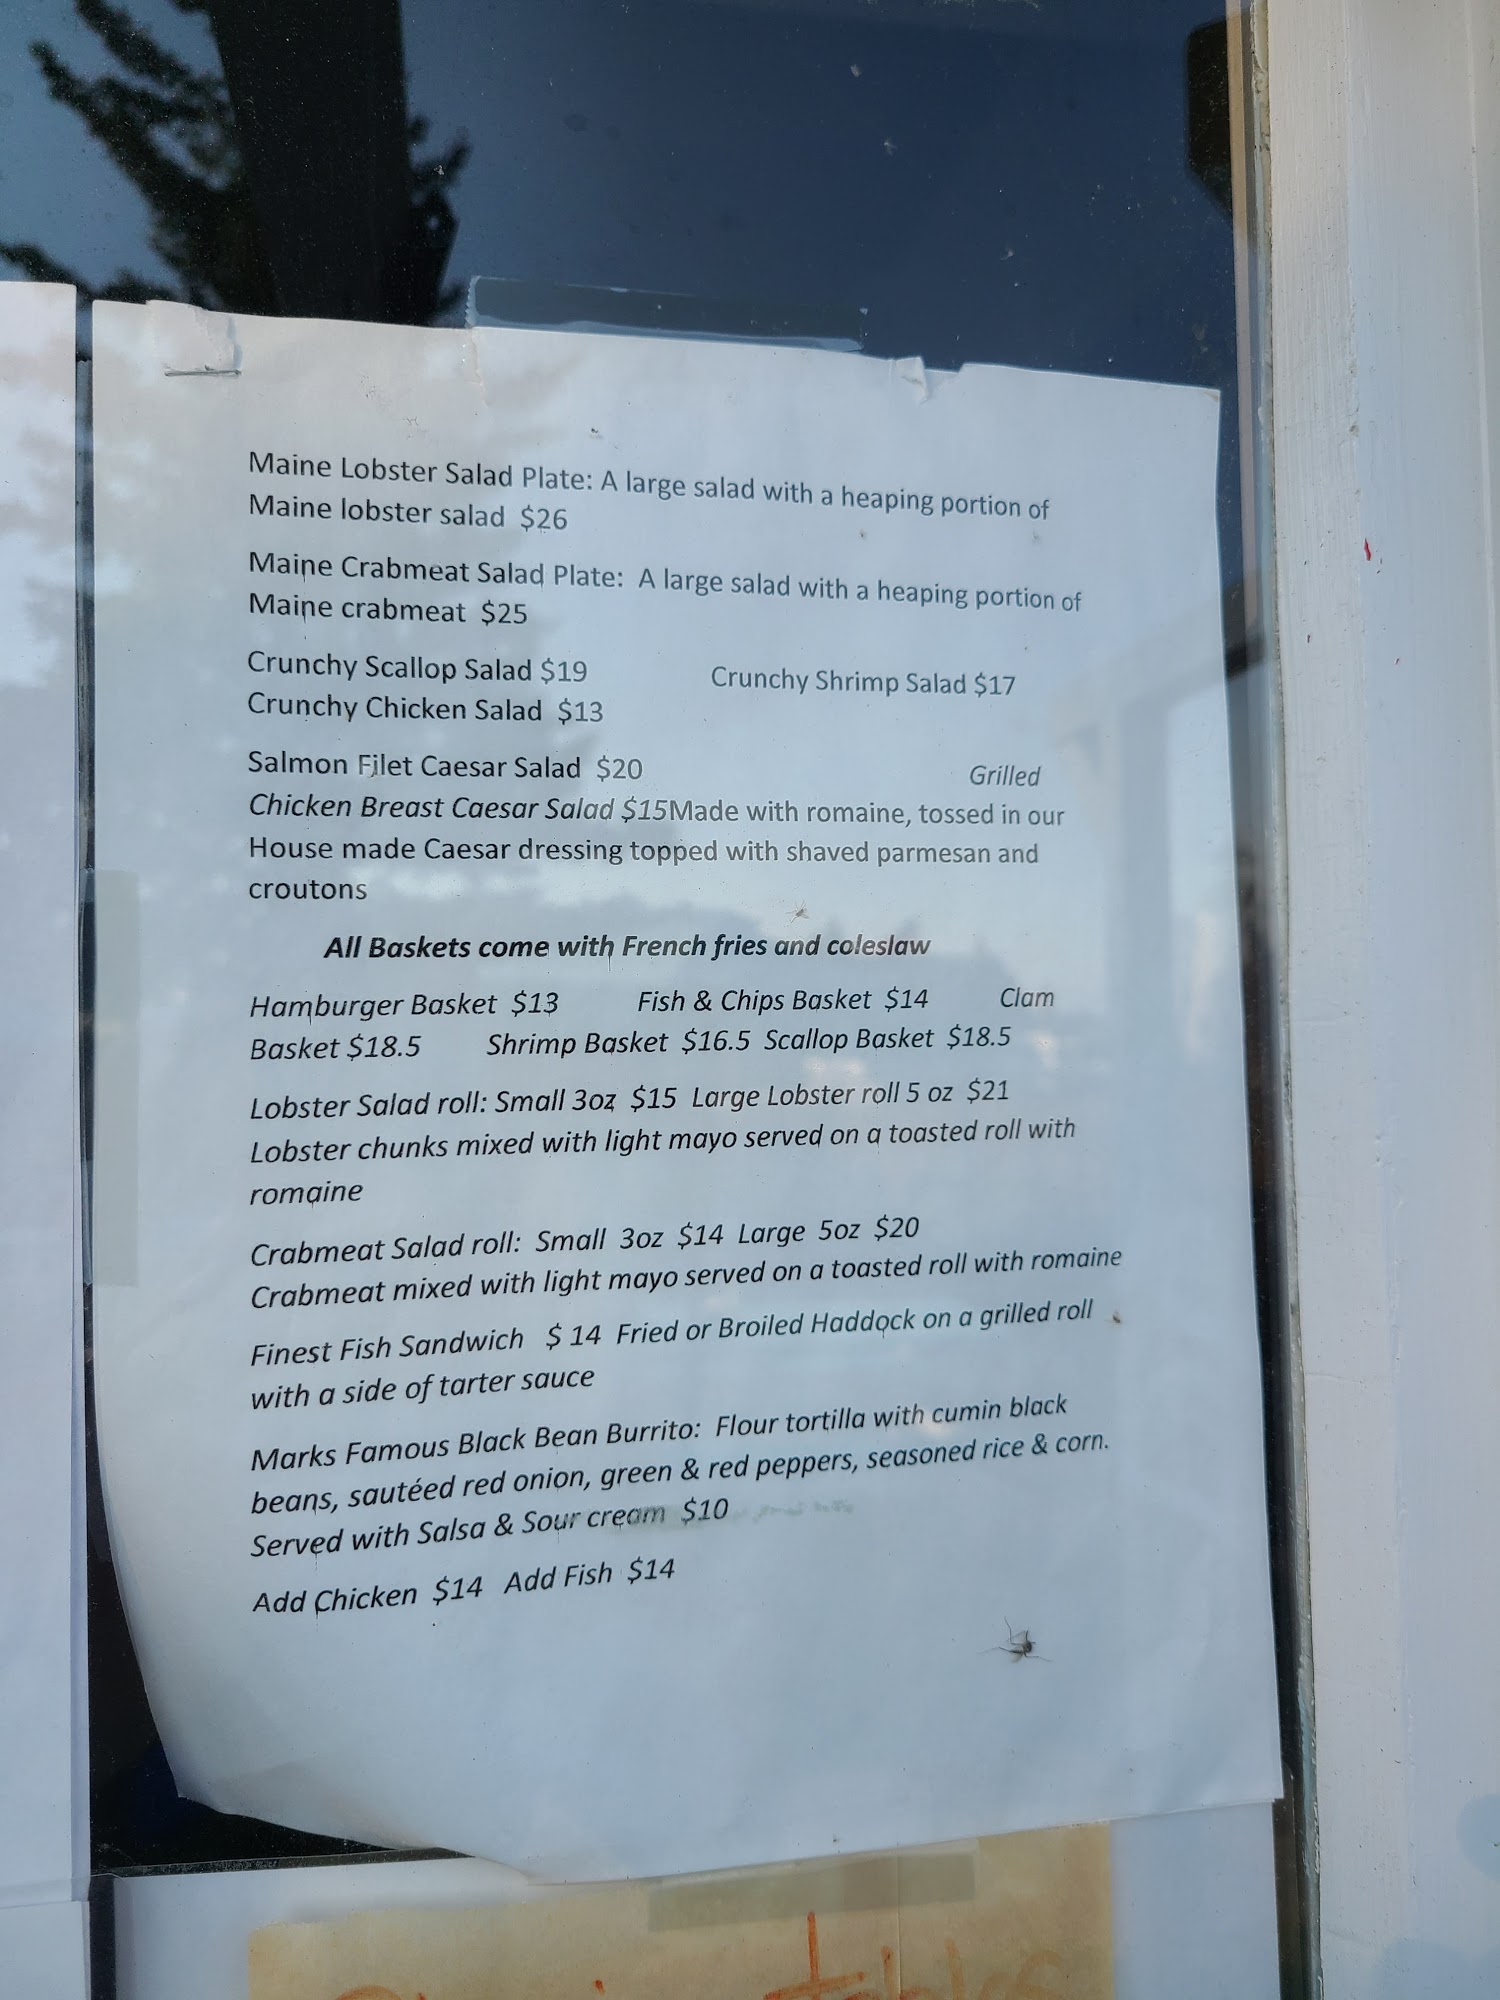 Maine Lobster Salad Plate: A large salad with a heaping portion of
Maine lobster salad $26
Maine Crabmeat Salad Plate: A large salad with a heaping portion of
Maine crabmeat $25
Crunchy Scallop Salad $19 Crunchy Shrimp Salad $17
Crunchy Chicken Salad $13
Salmon Filet Caesar Salad $20 Grilled
Chicken Breast Caesar Salad $15Made with romaine, tossed in our
House made Caesar dressing topped with shaved parmesan and
croutons
All Baskets come with French fries and coleslaw
Hamburger Basket $13 Fish & Chips Basket $14 Clam
Basket $18.5 Shrimp Basket $16.5 Scallop Basket $18.5
Lobster Salad roll: Small 3oz $15 Large Lobster roll 5 oz $21
Lobster chunks mixed with light mayo served on a toasted roll with
romaine
Crabmeat Salad roll: Small 3oz $14 Large 5oz $20
Crabmeat mixed with light mayo served on a toasted roll with romaine
Finest Fish Sandwich $ 14 Fried or Broiled Haddock on a grilled roll
with a side of tarter sauce
Marks Famous Black Bean Burrito: Flour tortilla with cumin black
beans, sautéed red onion, green & red peppers, seasoned rice & corn.
Served with Salsa & Sour cream $10
Add Chicken $14 Add Fish $14